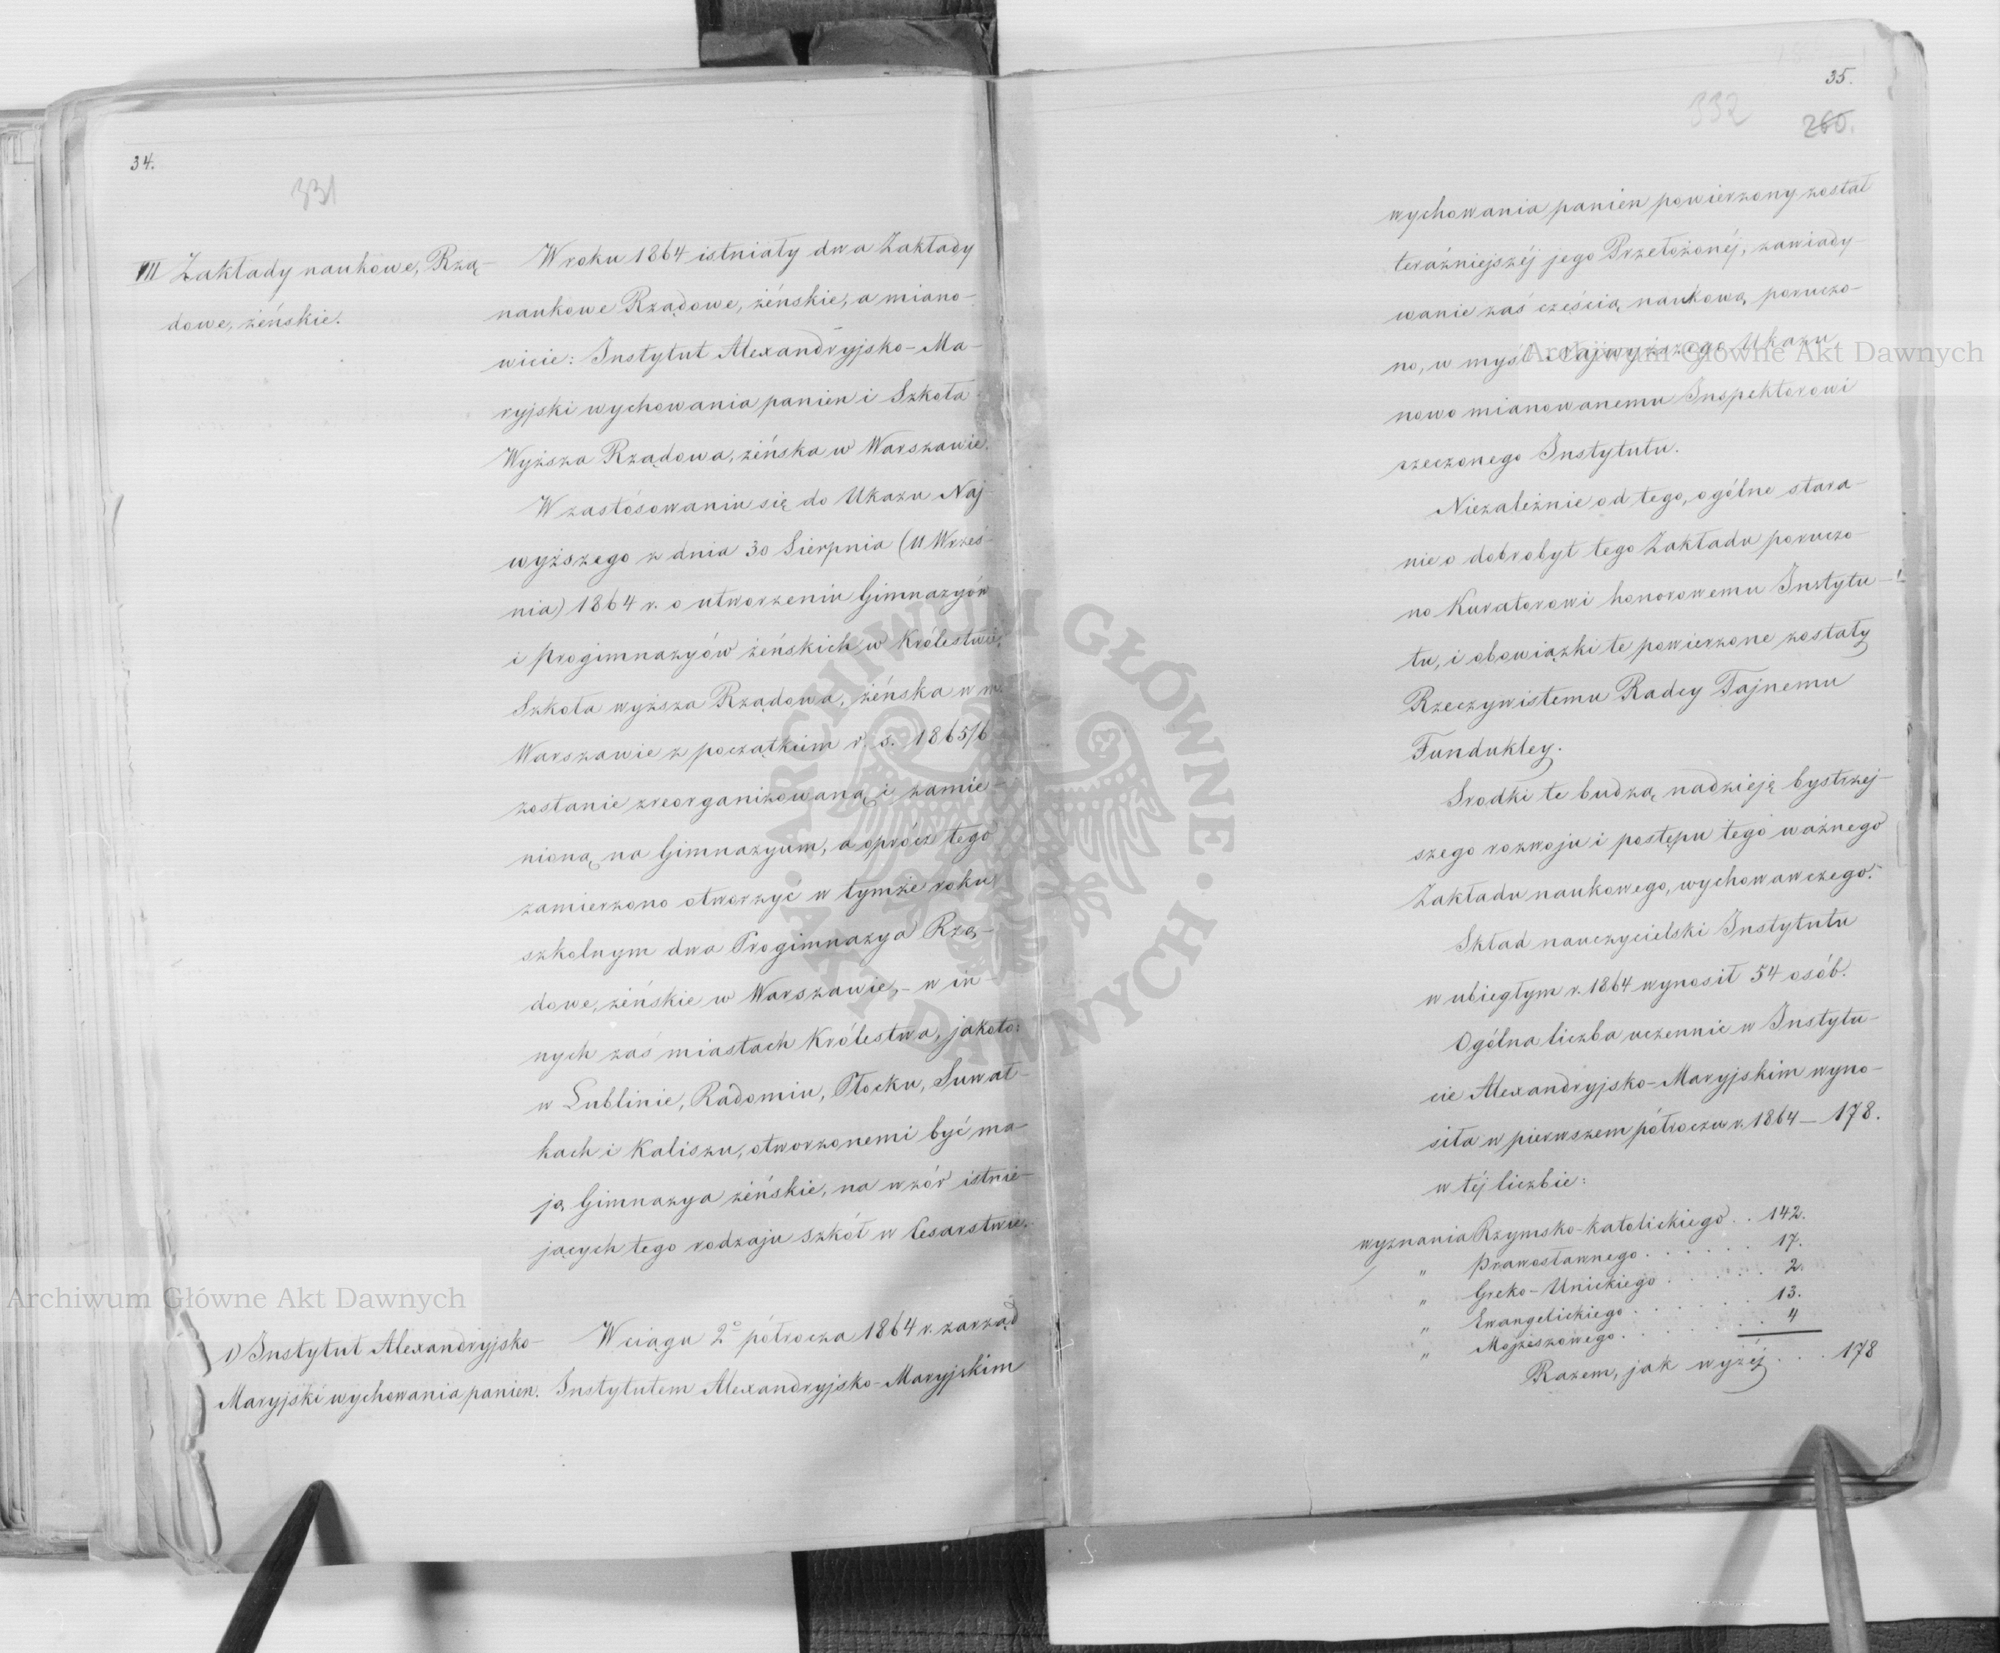 34.
331
VII Zakłady naukowe, Rzą-
dowe, żeńskie.
W roku 1864 istniały dwa Zakłady
naukowe Rządowe, żeńskie, a miano-
wicie: Instytut Alexandryjsko-Ma-
ryjski wychowania panien i Szkoła
Wyższa Rządowa, żeńska w Warszawie.
W zastósowaniu się do Ukazu Naj-
wyższego z dnia 30 Sierpnia (11 Wrześ-
nia) 1864 r. o utworzeniu Gimnazyów
i Progimnazyów żeńskich w Królestwie,
Szkoła wyższa Rządowa, żeńska w m.
Warszawie z początkiem r. s. 1865/6
zostanie zreorganizowaną i zamie-
nioną na Gimnazyum, a oprócz tego
zamierzono otworzyć w tymże roku
szkolnym dwa Progimnazya Rzą-
dowe, żeńskie w Warszawie, - w in-
nych zaś miastach Królestwa, jakoto:
w Lublinie, Radomiu, Płocku, Suwał-
kach i Kaliszu, otworzonemi być ma-
ją Gimnazya żeńskie, na wzór istnie-
jących tego rodzaju szkół w Cesarstwie.
1) Instytut Alexandryjsko-
Maryjski wychowania panien.
W ciągu 2º półrocza 1864 r. zarząd
Instytutem Alexandryjsko-Maryjskim
35.
332
260.
wychowania panien powierzony został
teraźniejszéj jego Przełożonéj, zawiady-
wanie zaś częścią naukową poruczo-
no, w myśl Najwyższego Ukazu,
nowo mianowanemu Inspektorowi
rzeczonego Instytutu.
Niezależnie od tego, ogólne stara-
nie o dobrobyt tego Zakładu poruczo-
no Kuratorowi honorowemu Instytu-
tu, i obowiązki te powierzone zostały
Rzeczywistemu Radcy Tajnemu
Fundukley.
Srodki te budzą nadzieję bystrzej-
szego rozwoju i postępu tego ważnego
Zakładu naukowego, wychowawczego.
Skład nauczycielski Instytutu
w ubiegłym r. 1864 wynosił 54 osób.
Ogólna liczba uczennic w Instytu-
cie Alexandryjsko-Maryjskim wyno-
siła w pierwszem półroczu r. 1864 - 178.
w téj liczbie:
wyznania Rzymsko-katolickiego . . 142.
" Prawosławnego . . . . . . 17.
" Greko-Unickiego . . . . . . 2.
" Ewangelickiego . . . . . . 13.
" Mojżeszowego . . . . . . . 4
Razem, jak wyżéj . . . 178
Archiwum Główne Akt Dawnych
Archiwum Główne Akt Dawnych
· ARCHIWUM GŁÓWNE · AKT DAWNYCH